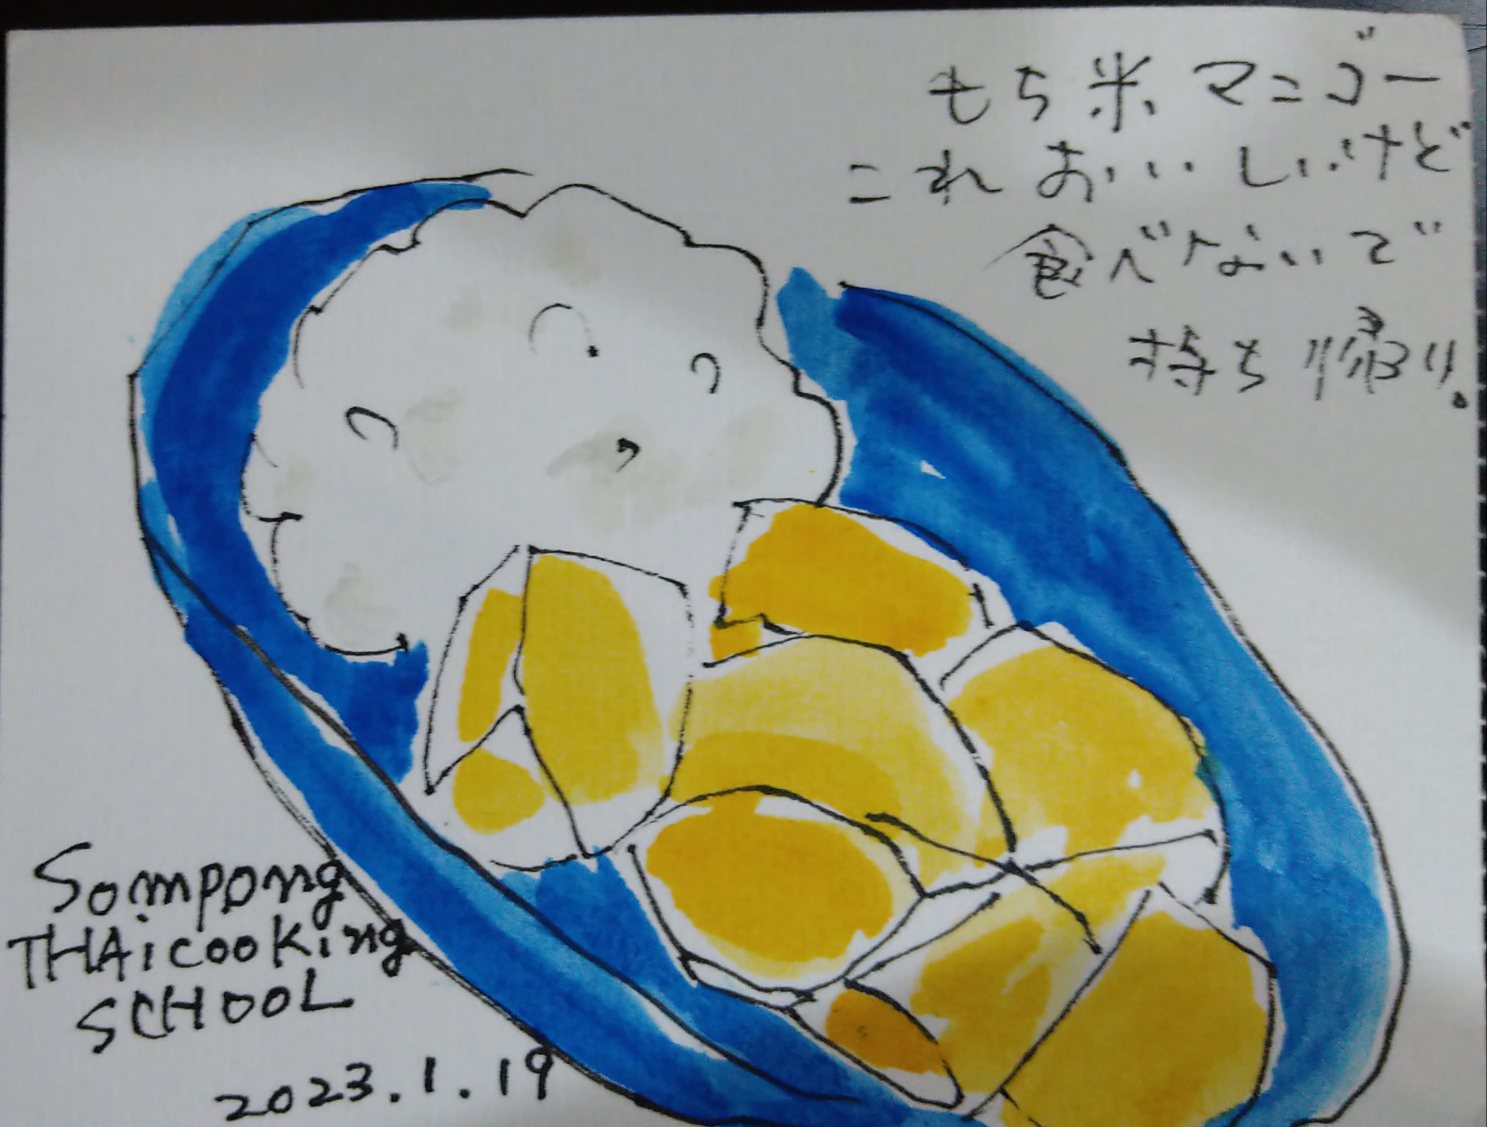 もち米、マンゴー
これおいしいけど
食べないで
持ち帰り。
Sompong
THAi cooKing
SCHOOL
2023.1.19